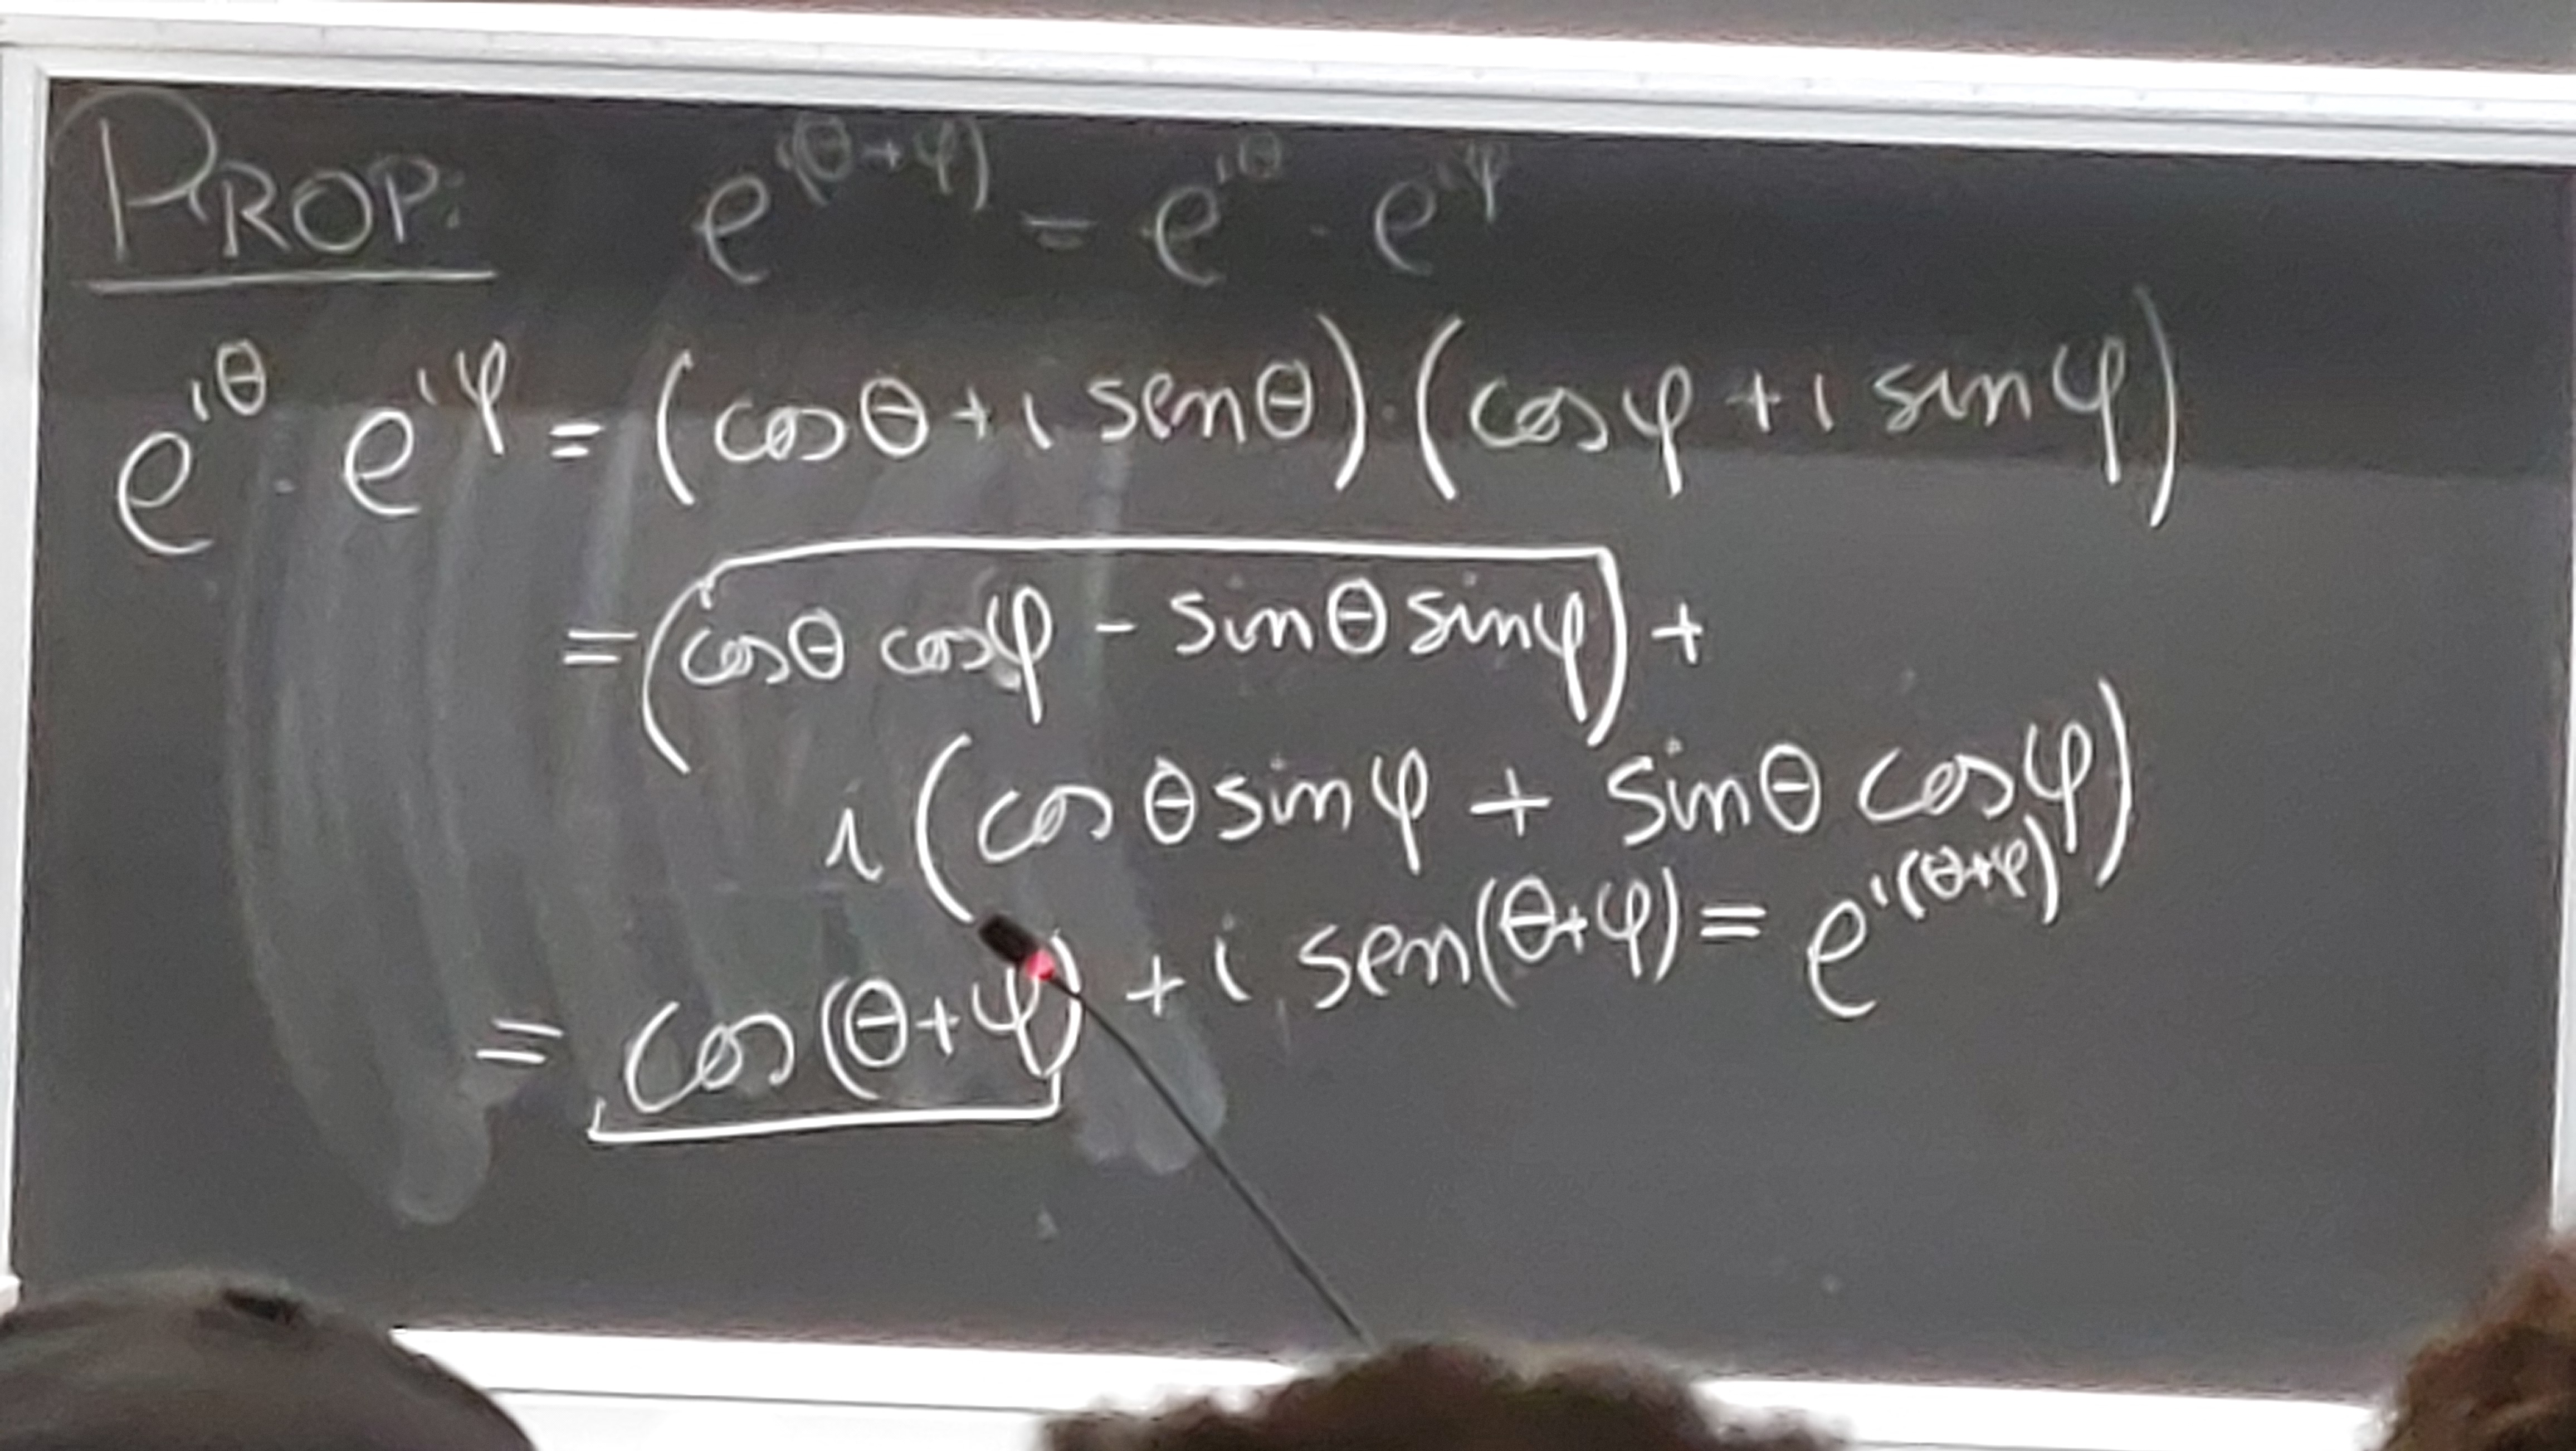 PROP: e^{i(θ+φ)} = e^{iθ} · e^{iφ}
e^{iθ} · e^{iφ} = (cosθ + i senθ) · (cosφ + i sinφ)
= (cosθ cosφ - sinθ sinφ) +
i (cosθ sinφ + sinθ cosφ)
= cos(θ+φ) + i sen(θ+φ) = e^{i(θ+φ)}